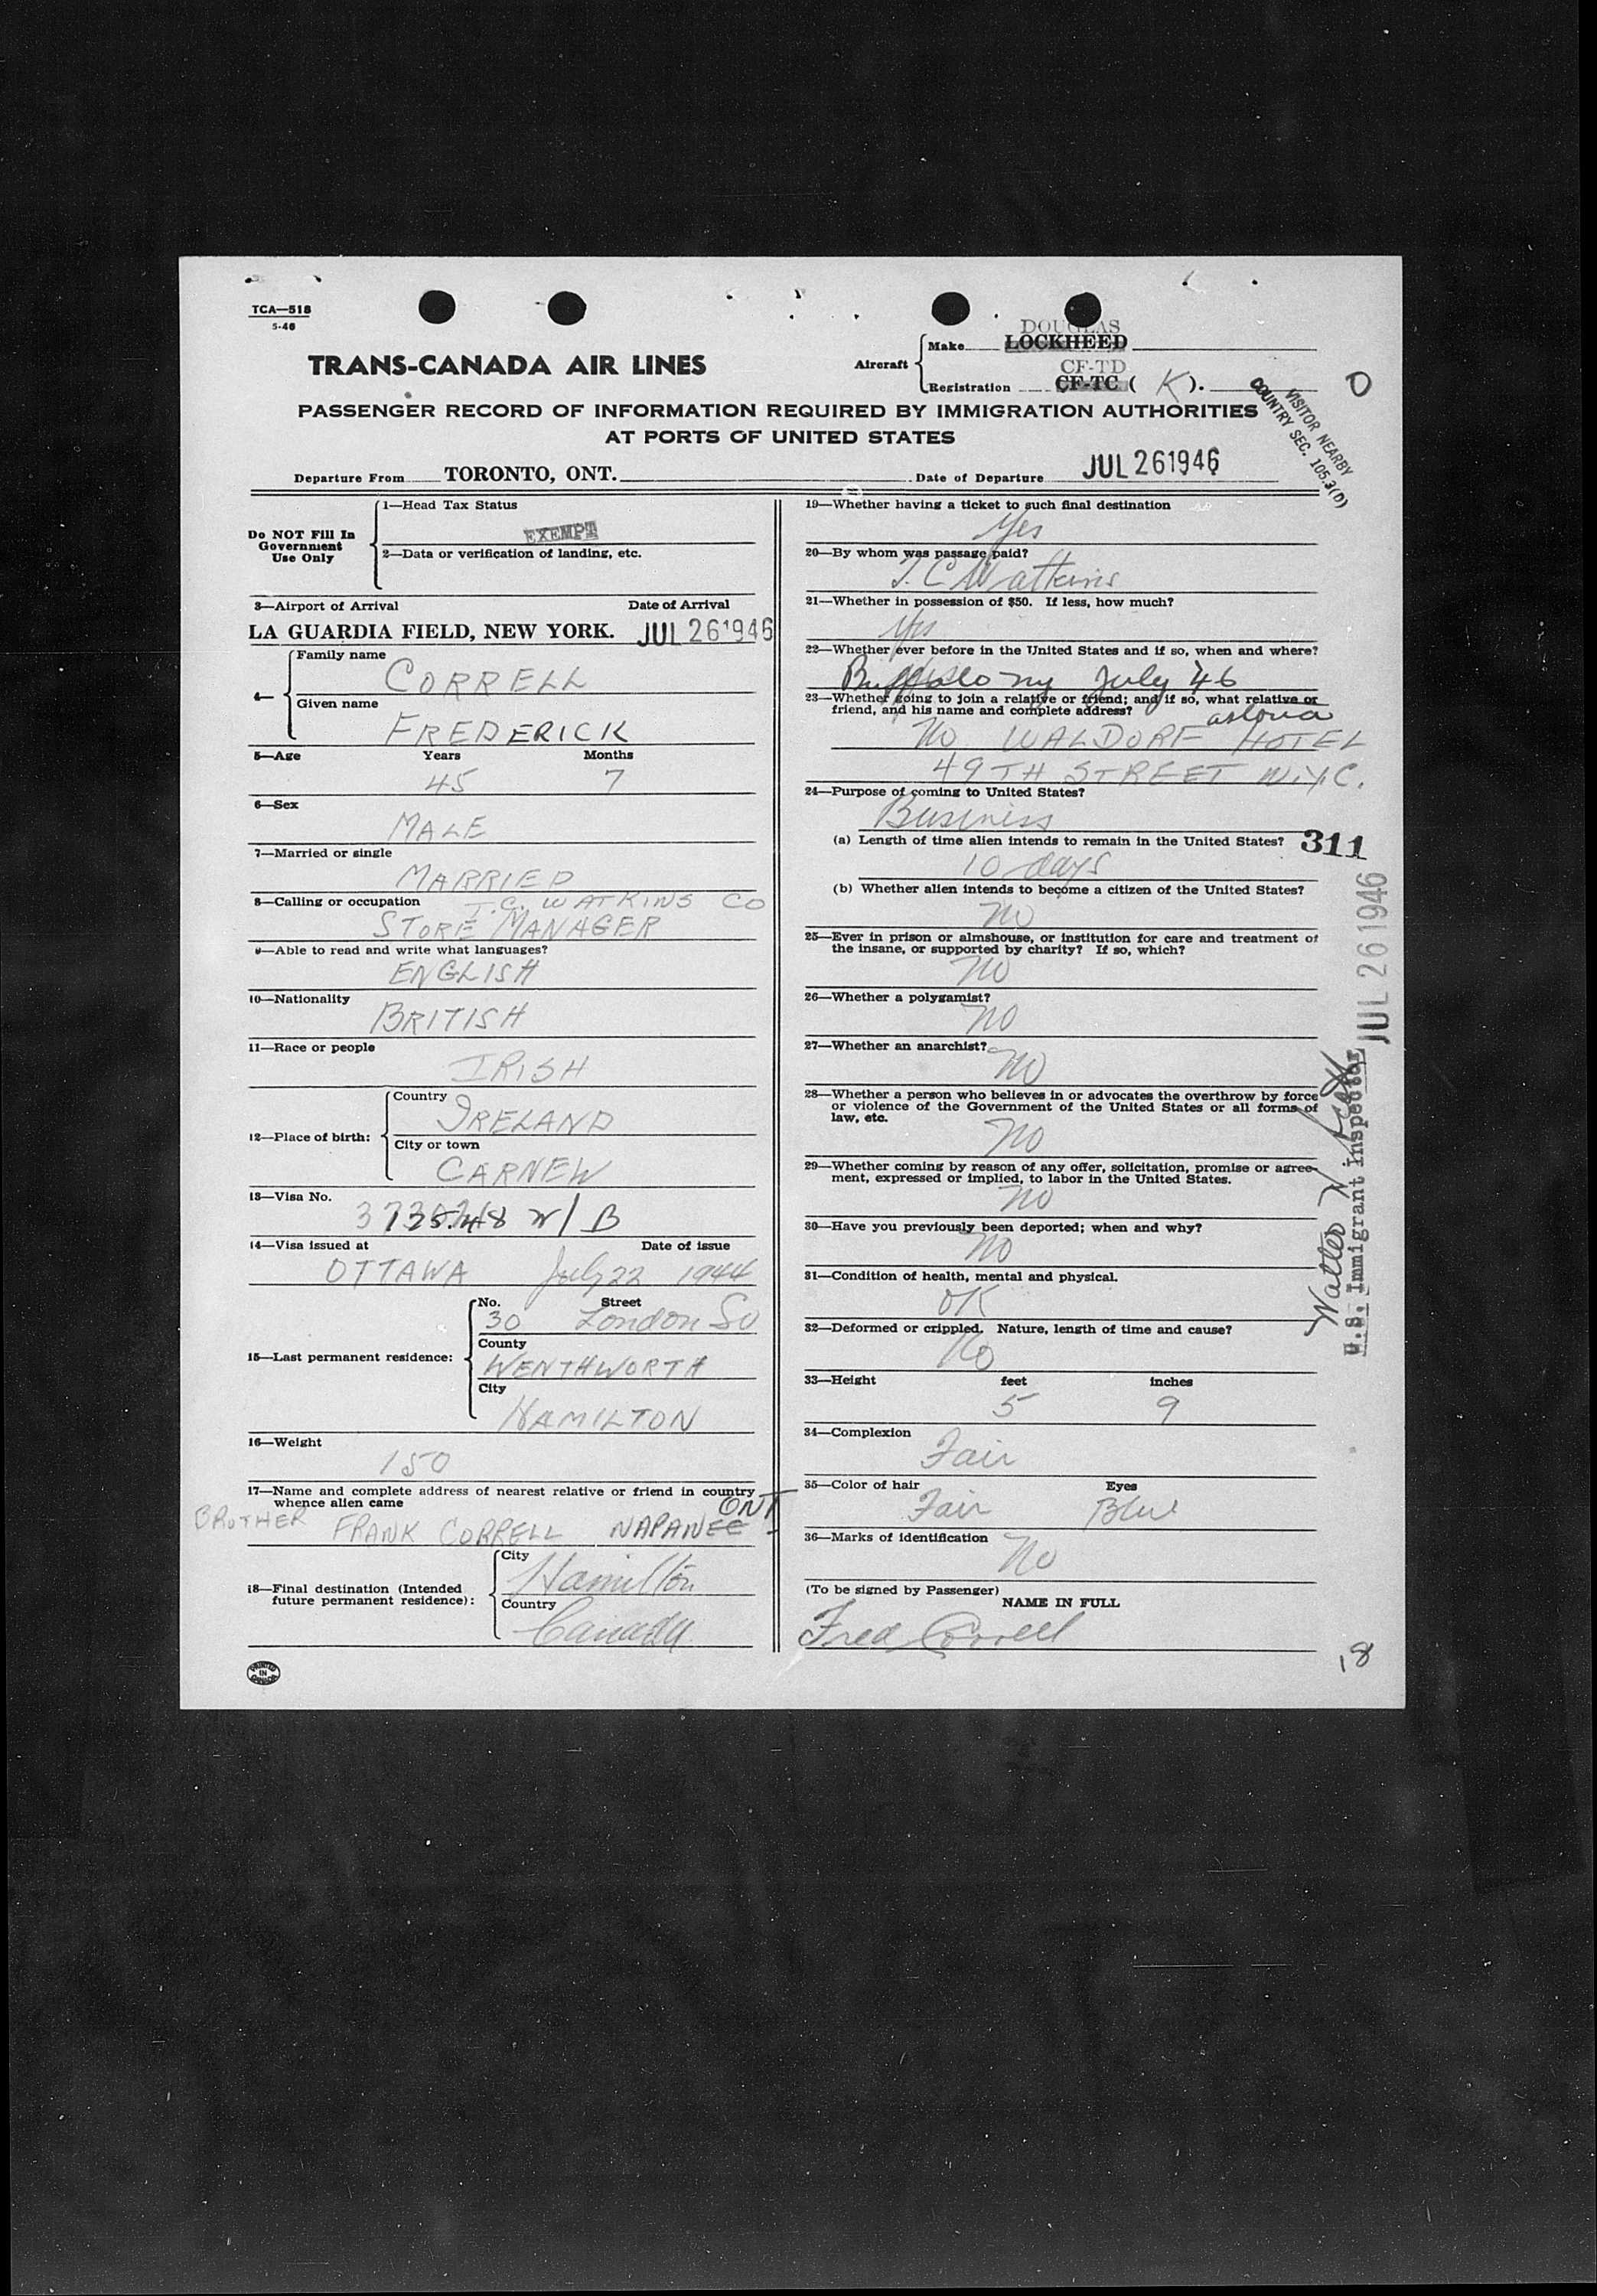 TCA—518
5-46
TRANS-CANADA AIR LINES
Aircraft
DOUGLAS
Make LOCKHEED
CF-TD
Registration CF-TC ( K ).
O
PASSENGER RECORD OF INFORMATION REQUIRED BY IMMIGRATION AUTHORITIES
AT PORTS OF UNITED STATES
VISITOR NEARBY
COUNTRY SEC. 105.3(D)
Departure From TORONTO, ONT. Date of Departure JUL 26 1946
Do NOT Fill In
Government
Use Only
1—Head Tax Status
EXEMPT
2—Data or verification of landing, etc.
3—Airport of Arrival Date of Arrival
LA GUARDIA FIELD, NEW YORK. JUL 26 1946
4—
Family name
CORRELL
Given name
FREDERICK
5—Age Years Months
45 7
6—Sex
MALE
7—Married or single
MARRIED
8—Calling or occupation T.C. WATKINS CO
STORE MANAGER
9—Able to read and write what languages?
ENGLISH
10—Nationality
BRITISH
11—Race or people
IRISH
12—Place of birth:
Country
IRELAND
City or town
CARNEW
13—Visa No.
14—Visa issued at Date of issue
OTTAWA July 22 1944
15—Last permanent residence:
No. Street
30 London So
County
WENTHWORTH
City
HAMILTON
16—Weight
150
17—Name and complete address of nearest relative or friend in country
whence alien came
ONT
BROTHER FRANK CORRELL NAPANEE
18—Final destination (Intended
future permanent residence):
City
Hamilton
Country
Canada
PRINTED
IN
CANADA
19—Whether having a ticket to such final destination
Yes
20—By whom was passage paid?
T. C Watkins
21—Whether in possession of $50. If less, how much?
Yes
22—Whether ever before in the United States and if so, when and where?
Buffalo ny July 46
23—Whether going to join a relative or friend; and if so, what relative or
friend, and his name and complete address?
astoria
No WALDORF HOTEL
49TH STREET N.Y.C.
24—Purpose of coming to United States?
Business
(a) Length of time alien intends to remain in the United States?
311
10 days
(b) Whether alien intends to become a citizen of the United States?
No
25—Ever in prison or almshouse, or institution for care and treatment of
the insane, or supported by charity? If so, which?
No
26—Whether a polygamist?
NO
27—Whether an anarchist?
No
28—Whether a person who believes in or advocates the overthrow by force
or violence of the Government of the United States or all forms of
law, etc.
No
29—Whether coming by reason of any offer, solicitation, promise or agree-
ment, expressed or implied, to labor in the United States.
No
30—Have you previously been deported; when and why?
No
31—Condition of health, mental and physical.
OK
32—Deformed or crippled. Nature, length of time and cause?
No
33—Height feet inches
5 9
34—Complexion
Fair
35—Color of hair Eyes
Fair Blue
36—Marks of identification
No
(To be signed by Passenger)
NAME IN FULL
Fred Correll
JUL 26 1946
Walter N
U.S. Immigrant inspector
18